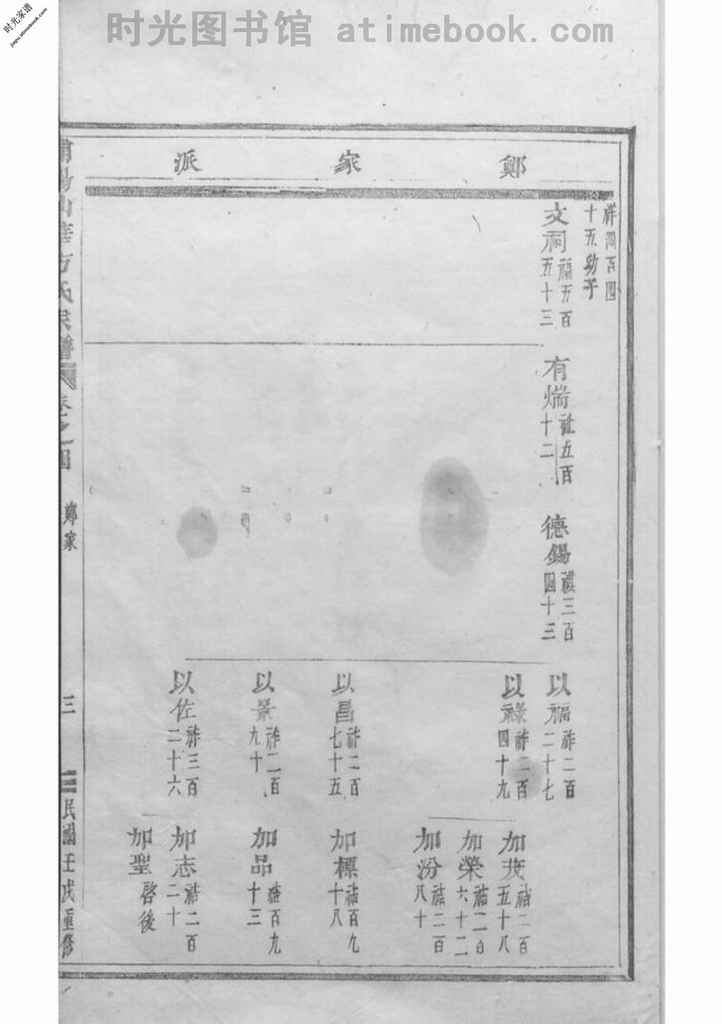 时光图书馆 atimebook.com
时光家谱
jiapu.atimebook.com
鄭家派
祥四百四
十五幼子
文祠 福五百五十三
有煓 祉五百十二
德錫 禩三百四十三
以福 祚二百二十七
以祿 祚二百四十九
以昌 祚二百七十五
以景 祚二百九十
以佐 祚三百二十六
加茂 祜二百五十八
加榮 祜二百六十二
加汾 祜二百八十
加標 祜百九十八
加品 祜百九十三
加志 祜二百二十
加聖 啓後
山 方氏宗譜 卷之四 鄭家 三 民國壬戌重修